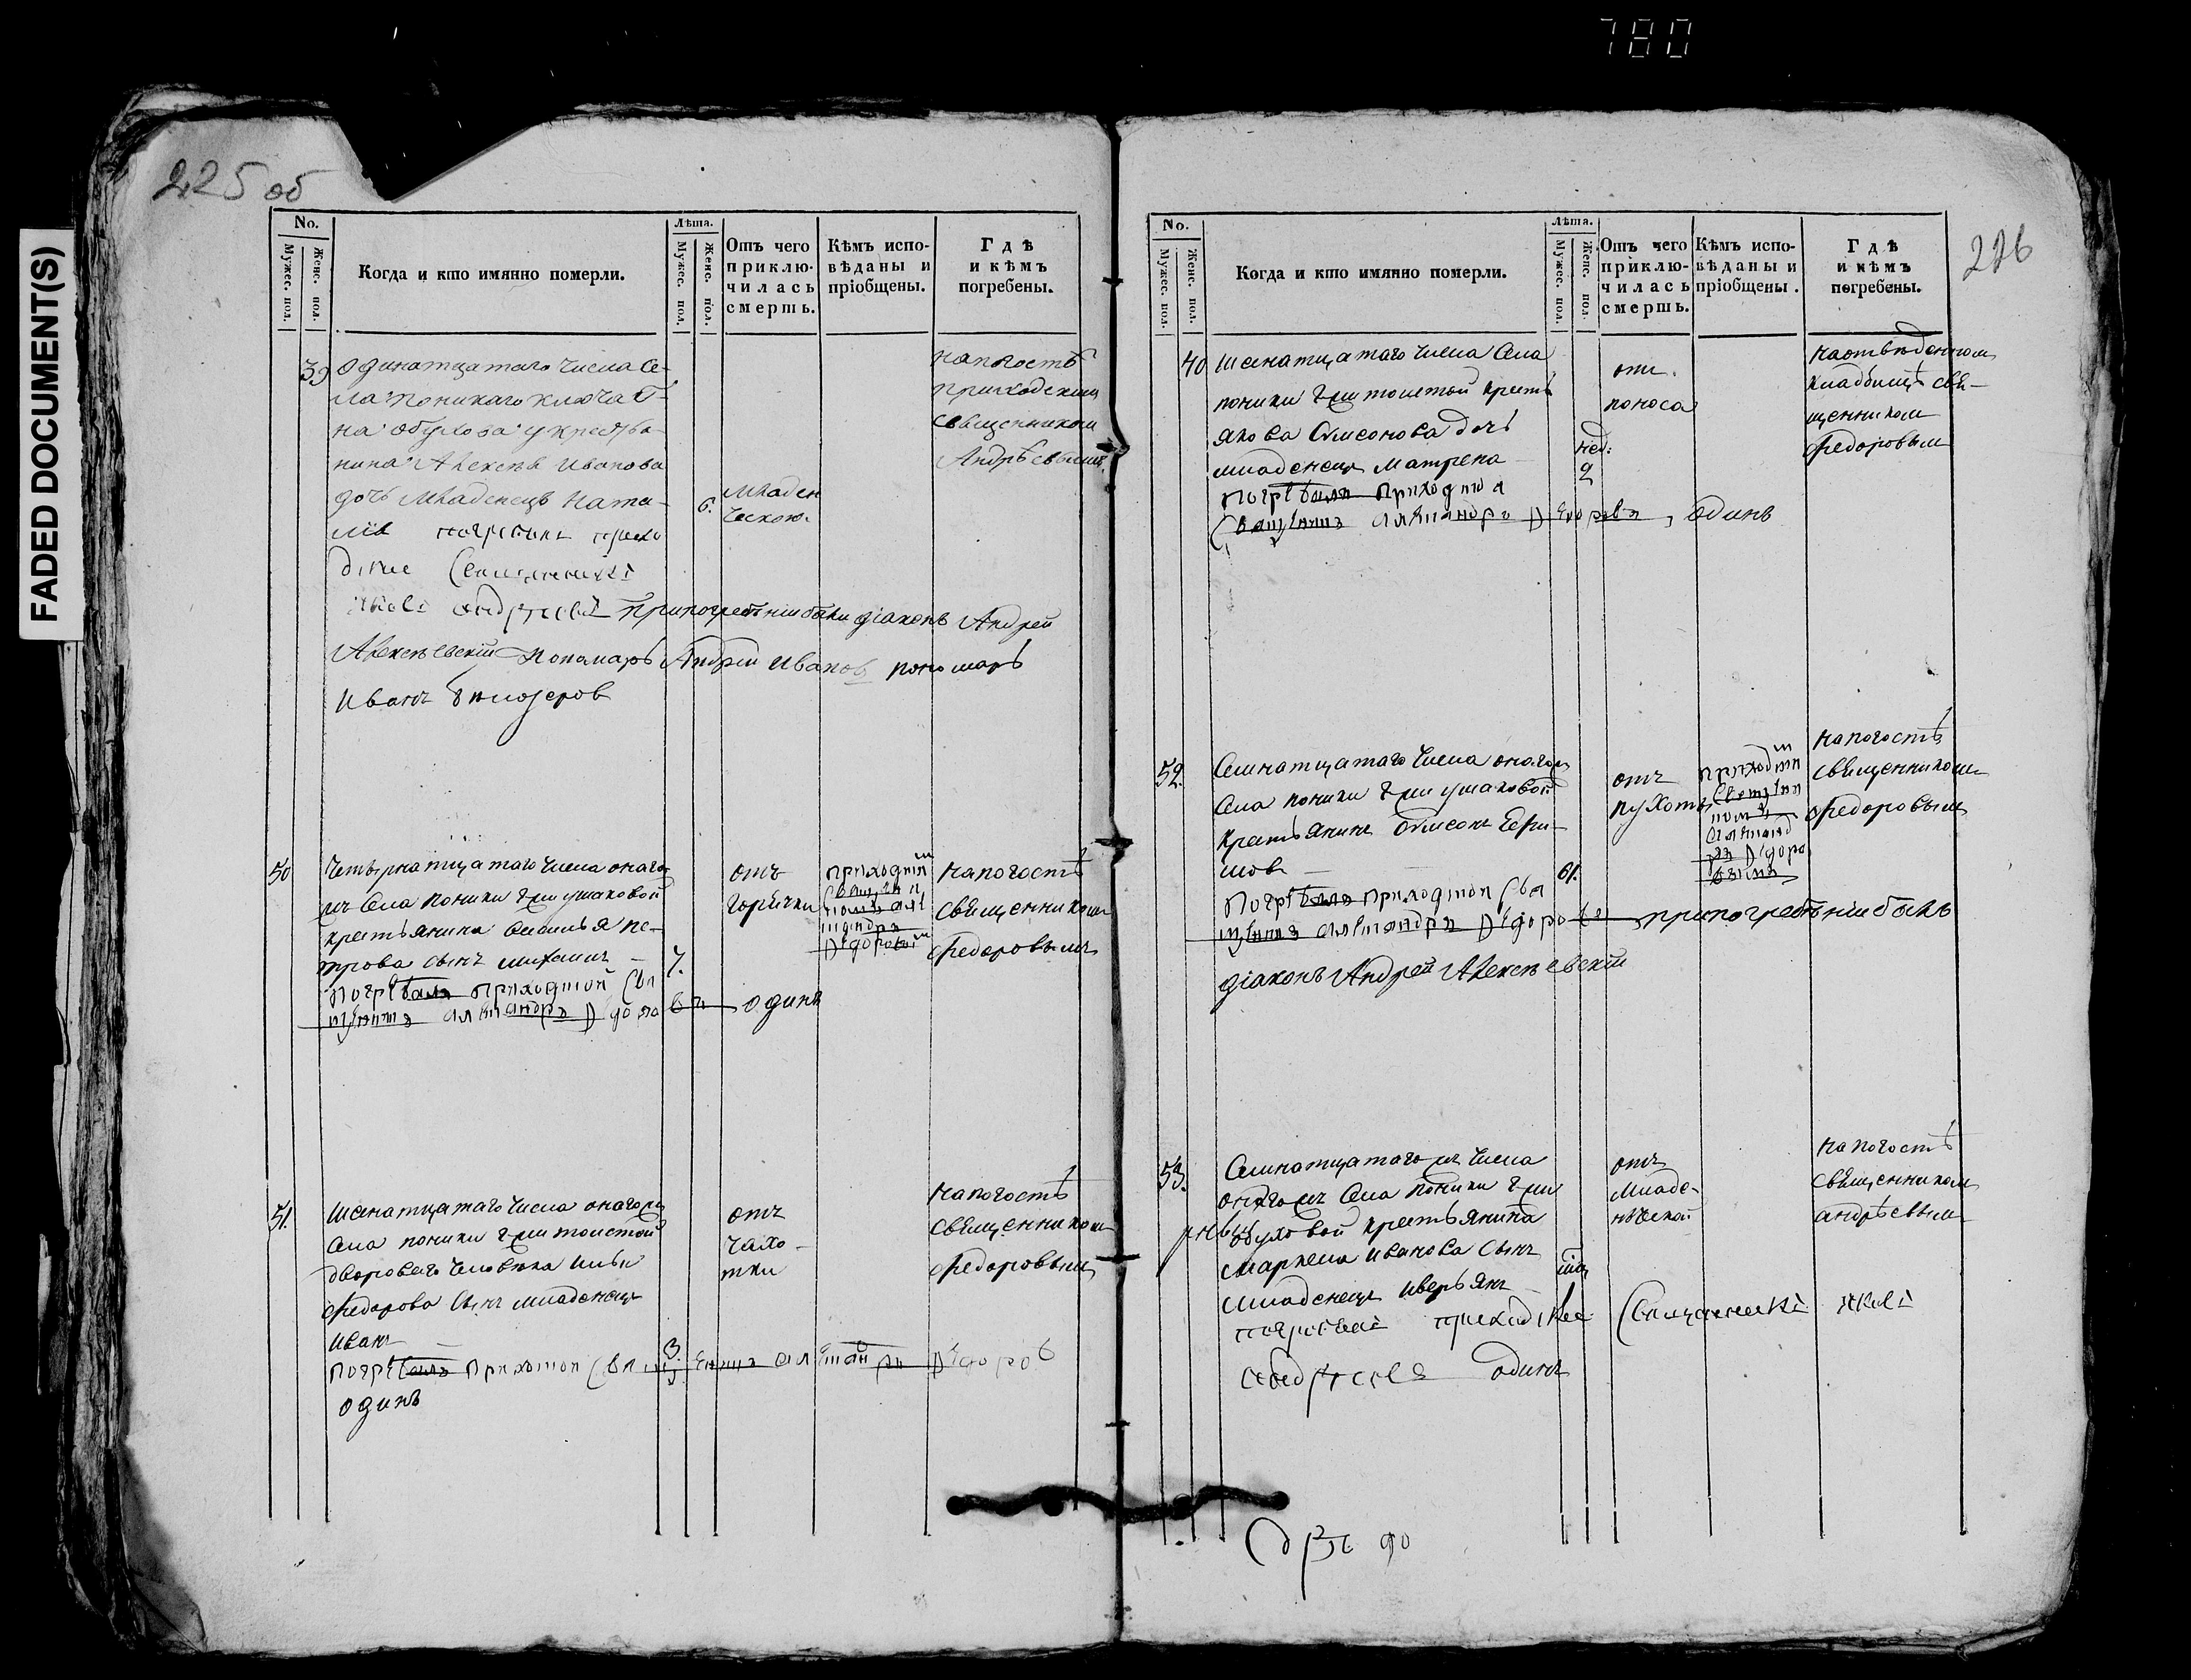 780
FADED DOCUMENT(S)
225 об
No.
Мужес. пол.
Женс. пол.
Когда и кто имянно померли.
Лѣта.
Мужес. пол.
Женс. пол.
Отъ чего
приклю-
чилась
смерть.
Кѣмъ испо-
вѣданы и
пріобщены.
Гдѣ
и кѣмъ
погребены.
39
Одинатцатаго числа се-
ла Поникаго ключа
на Обухова у крестья-
нина Алексѣя Иванова
дочь младенецъ Ната-
лія погребалъ прихо
дск
Андреевъ при погребеніи были діаконъ Андрей
Алексѣевскій Пономарь Андрей Ивановъ пономарь
Иванъ Белозеров
6.
младен
ческою.
на погостѣ
приходским
священником
Андрѣевымъ
50
Четырнатцатаго числа онаго
жъ села поники г-жи ушаковой
крестьянина Василья пе-
трова сынъ михаилъ
погребалъ приходской свя
щенникъ александръ Ѳедоро въ один
7.
отъ
горячки
приходскимъ
священ
никомъ але
ксандр
Ѳедоровым
на погостѣ
священником
Федоровымъ
51.
шеснатцатаго числа онагожъ
села поники г-жи толстой
двороваго человѣка ильи
Федорова сынъ младенецъ
иванъ
погребалъ приходской священникъ александръ Ѳедоров
один
3.
отъ
чахо-
тки
на погостѣ
священником
Федоровым
226
No.
Мужес. пол.
Женс. пол.
Когда и кто имянно померли.
Лѣта.
Мужес. пол.
Женс. пол.
Отъ чего
приклю-
чилась
смерть.
Кѣмъ испо-
вѣданы и
пріобщены.
Гдѣ
и кѣмъ
погребены.
40
шеснатцатаго числа села
поники г-жи толстой крестья
якова Симеонова дочь
младенецъ Матрена
погребалъ приходской
священникъ александръ Ѳедоровъ, один
нед:
2
отъ
поноса
на отведенном
кладбищѣ свя-
щенником
Федоровым
52.
Семнатцатаго числа онагожъ
села поники г-жи ушаковой
крестьянинъ Симеонъ
мовъ
погребалъ приходской свя
щенникъ александръ Ѳедоровъ при погребеніи былъ
діаконъ Андрей Алексѣевскій
61.
отъ
пухоты
приходским
священ
ником
александ
ром Ѳедоро
вымъ
на погостѣ
священником
Федоровым
53.
Семнатцатаго жъ числа
онагожъ села поники г-жи
обуховой крестьянина
Маркела иванова сынъ
младенецъ
погребалъ приходской священникъ яковъ
андреевъ один
отъ
младе-
нческой
на погостѣ
священником
андрѣевым